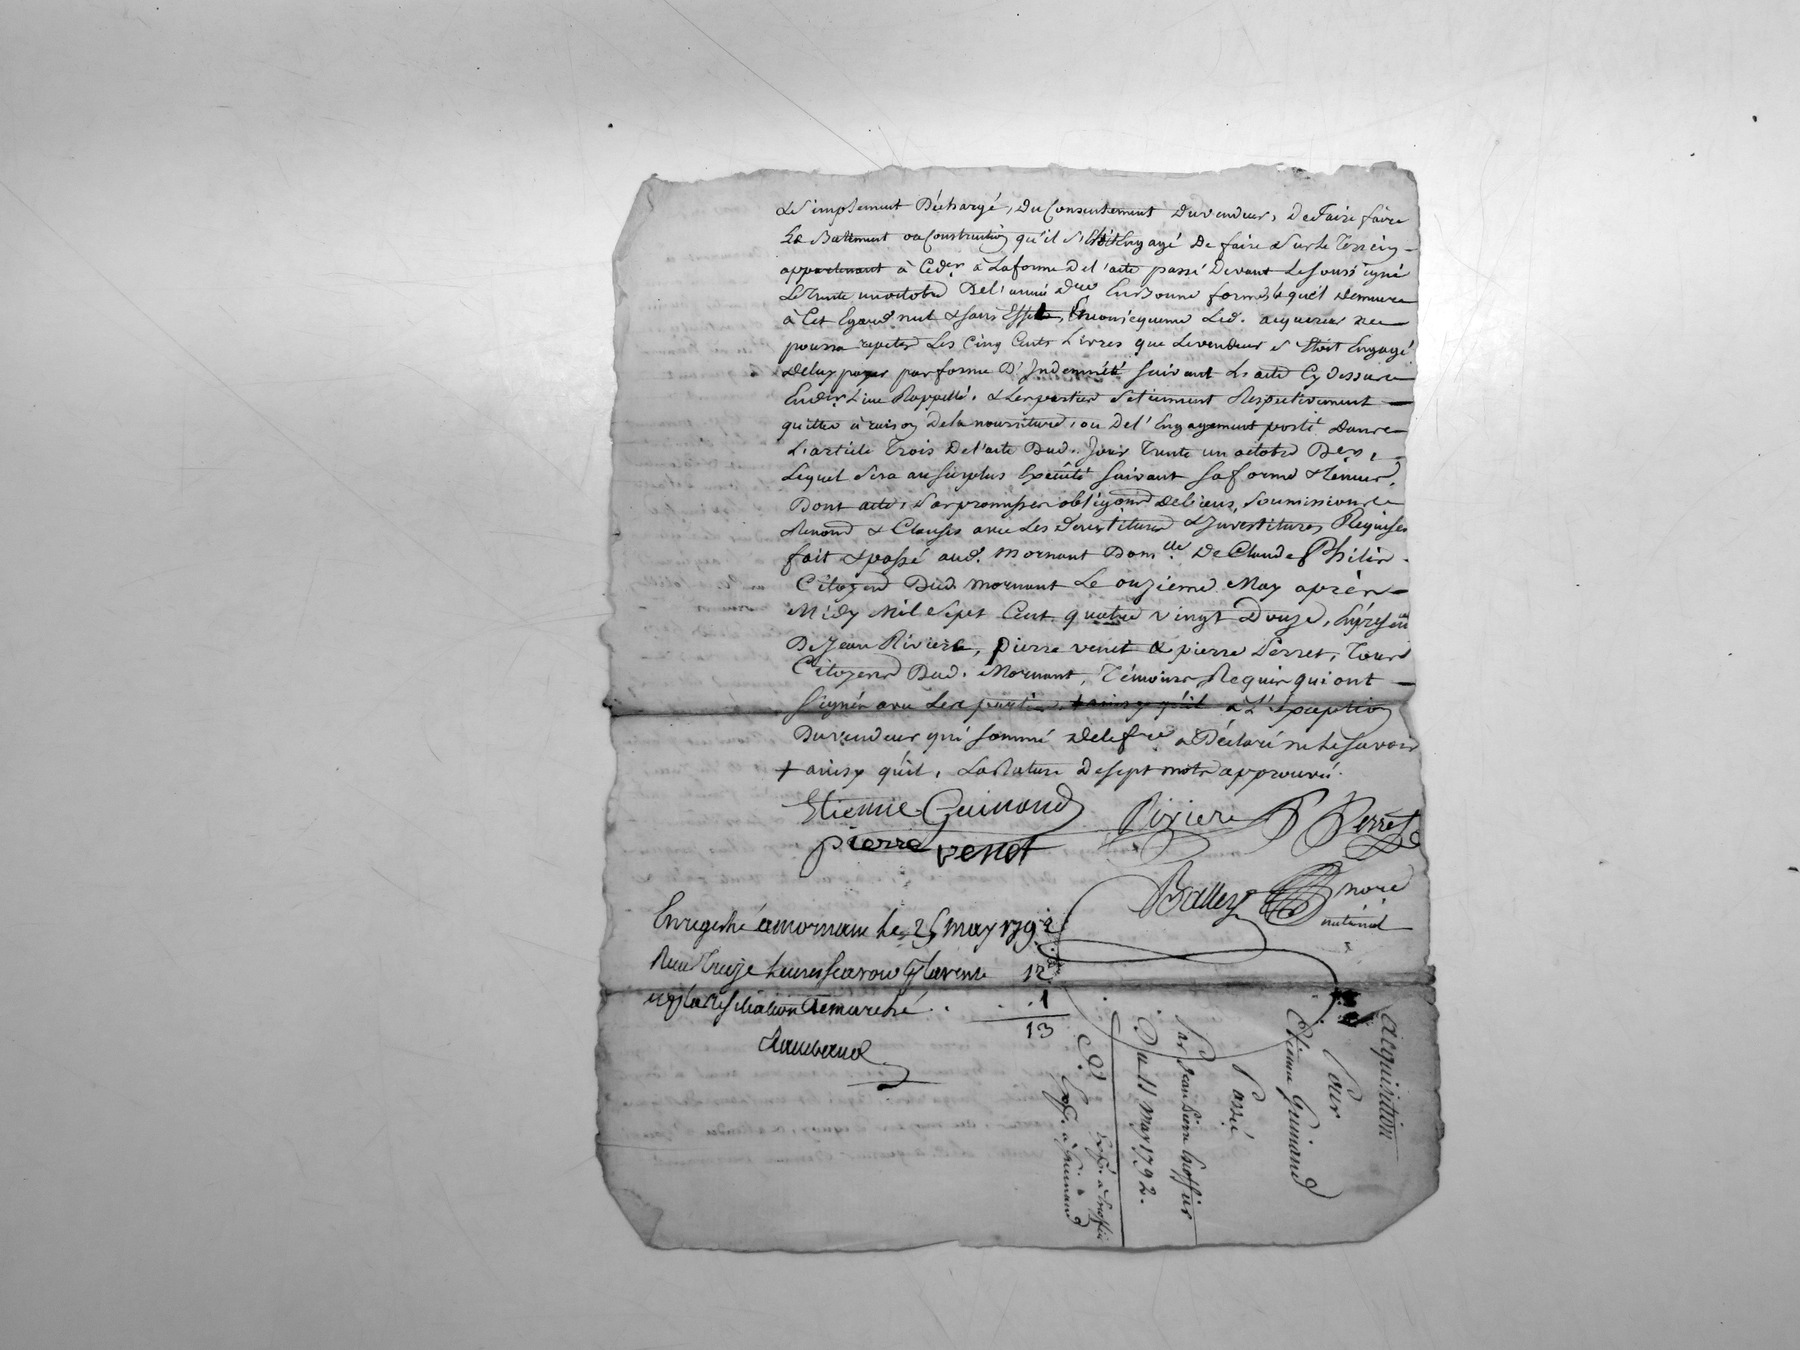 & simplement Déchargé, Du Consentement Du vendeur, De faire faire
Les Batiment ou Construction qu'il s'étoit Engagé De faire sur le Terrein
appartenant à Céder à La forme De l'acte passé Devant Le soussigné
Le Trente un octobre De l'année Dre En Bonne forme, Lequel Demeure
à Cet Egard nul & sans Effet, En Consequence Led. acquereur ne
pourra repeter Les Cinq Cents Livres que Le vendeur s'étoit Engagé
De luy payer par forme D'Indemnité suivant L'acte Cy Dessus
Rappellé, & Les parties se tiennent Respectivement
quittes à raison De la nourriture, ou De l'Engagement porté Dans
L'article Trois De l'acte Dud. Jour Trente un octobre Der,
Lequel sera au surplus Exécuté suivant sa forme & teneur,
Dont acte, par promesses obligaons De biens, soumissions
Renonons & Clauses avec Les Devestitures & Investitures Requises
fait & passé aud. Mornant Domlle De Claude Philis
Citoyen Dud. Mornant Le onzieme May après
Midy Mil sept Cent quatre vingt Douze, En présence
De Jean Riviere, pierre venet & pierre Perret, Tous
Citoyens Dud. Mornant, Témoins Requis qui ont
signés avec Les parties, + ainsy qu'il à L'exception
Du vendeur qui sommé De le fre a Déclaré ne Le savoir
+ ainsy qu'il, La Rature De sept mots approuvée.
Etienne Guinand Riviere P Perret
pierre venet
Balley nore
national
Enregistré à mornant le 25 may 1792
Reçu Treize livres savoir pr la vente 12
et pr la Résiliation De marché . . . 1
13
Acquisition
Pour
Etienne Guinand
Passé
Par Jean Pierre
Du 11 May 1792.
Expé. à
Exp. à Guinand